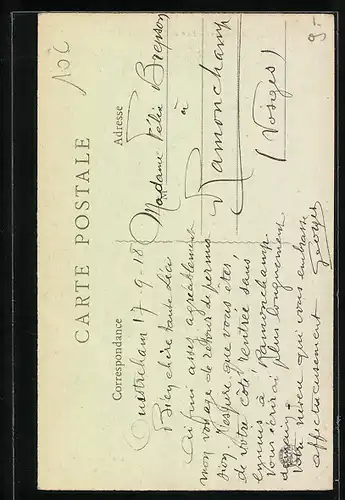 CARTE POSTALE
Correspondance
Adresse
Ouistreham 17-9-18
Bien chère tante Léa
Ai fini assez agréablement
mon voyage de retour de permis
sion J'espère que vous êtes
de votre côté rentrée sans
ennuis à Ramonchamp.
Vous écrirai plus longuement
demain.
Votre neveu qui vous embrasse
affectueusement Georges
Madame Félix
à
Ramonchamp
(Vosges)
9-